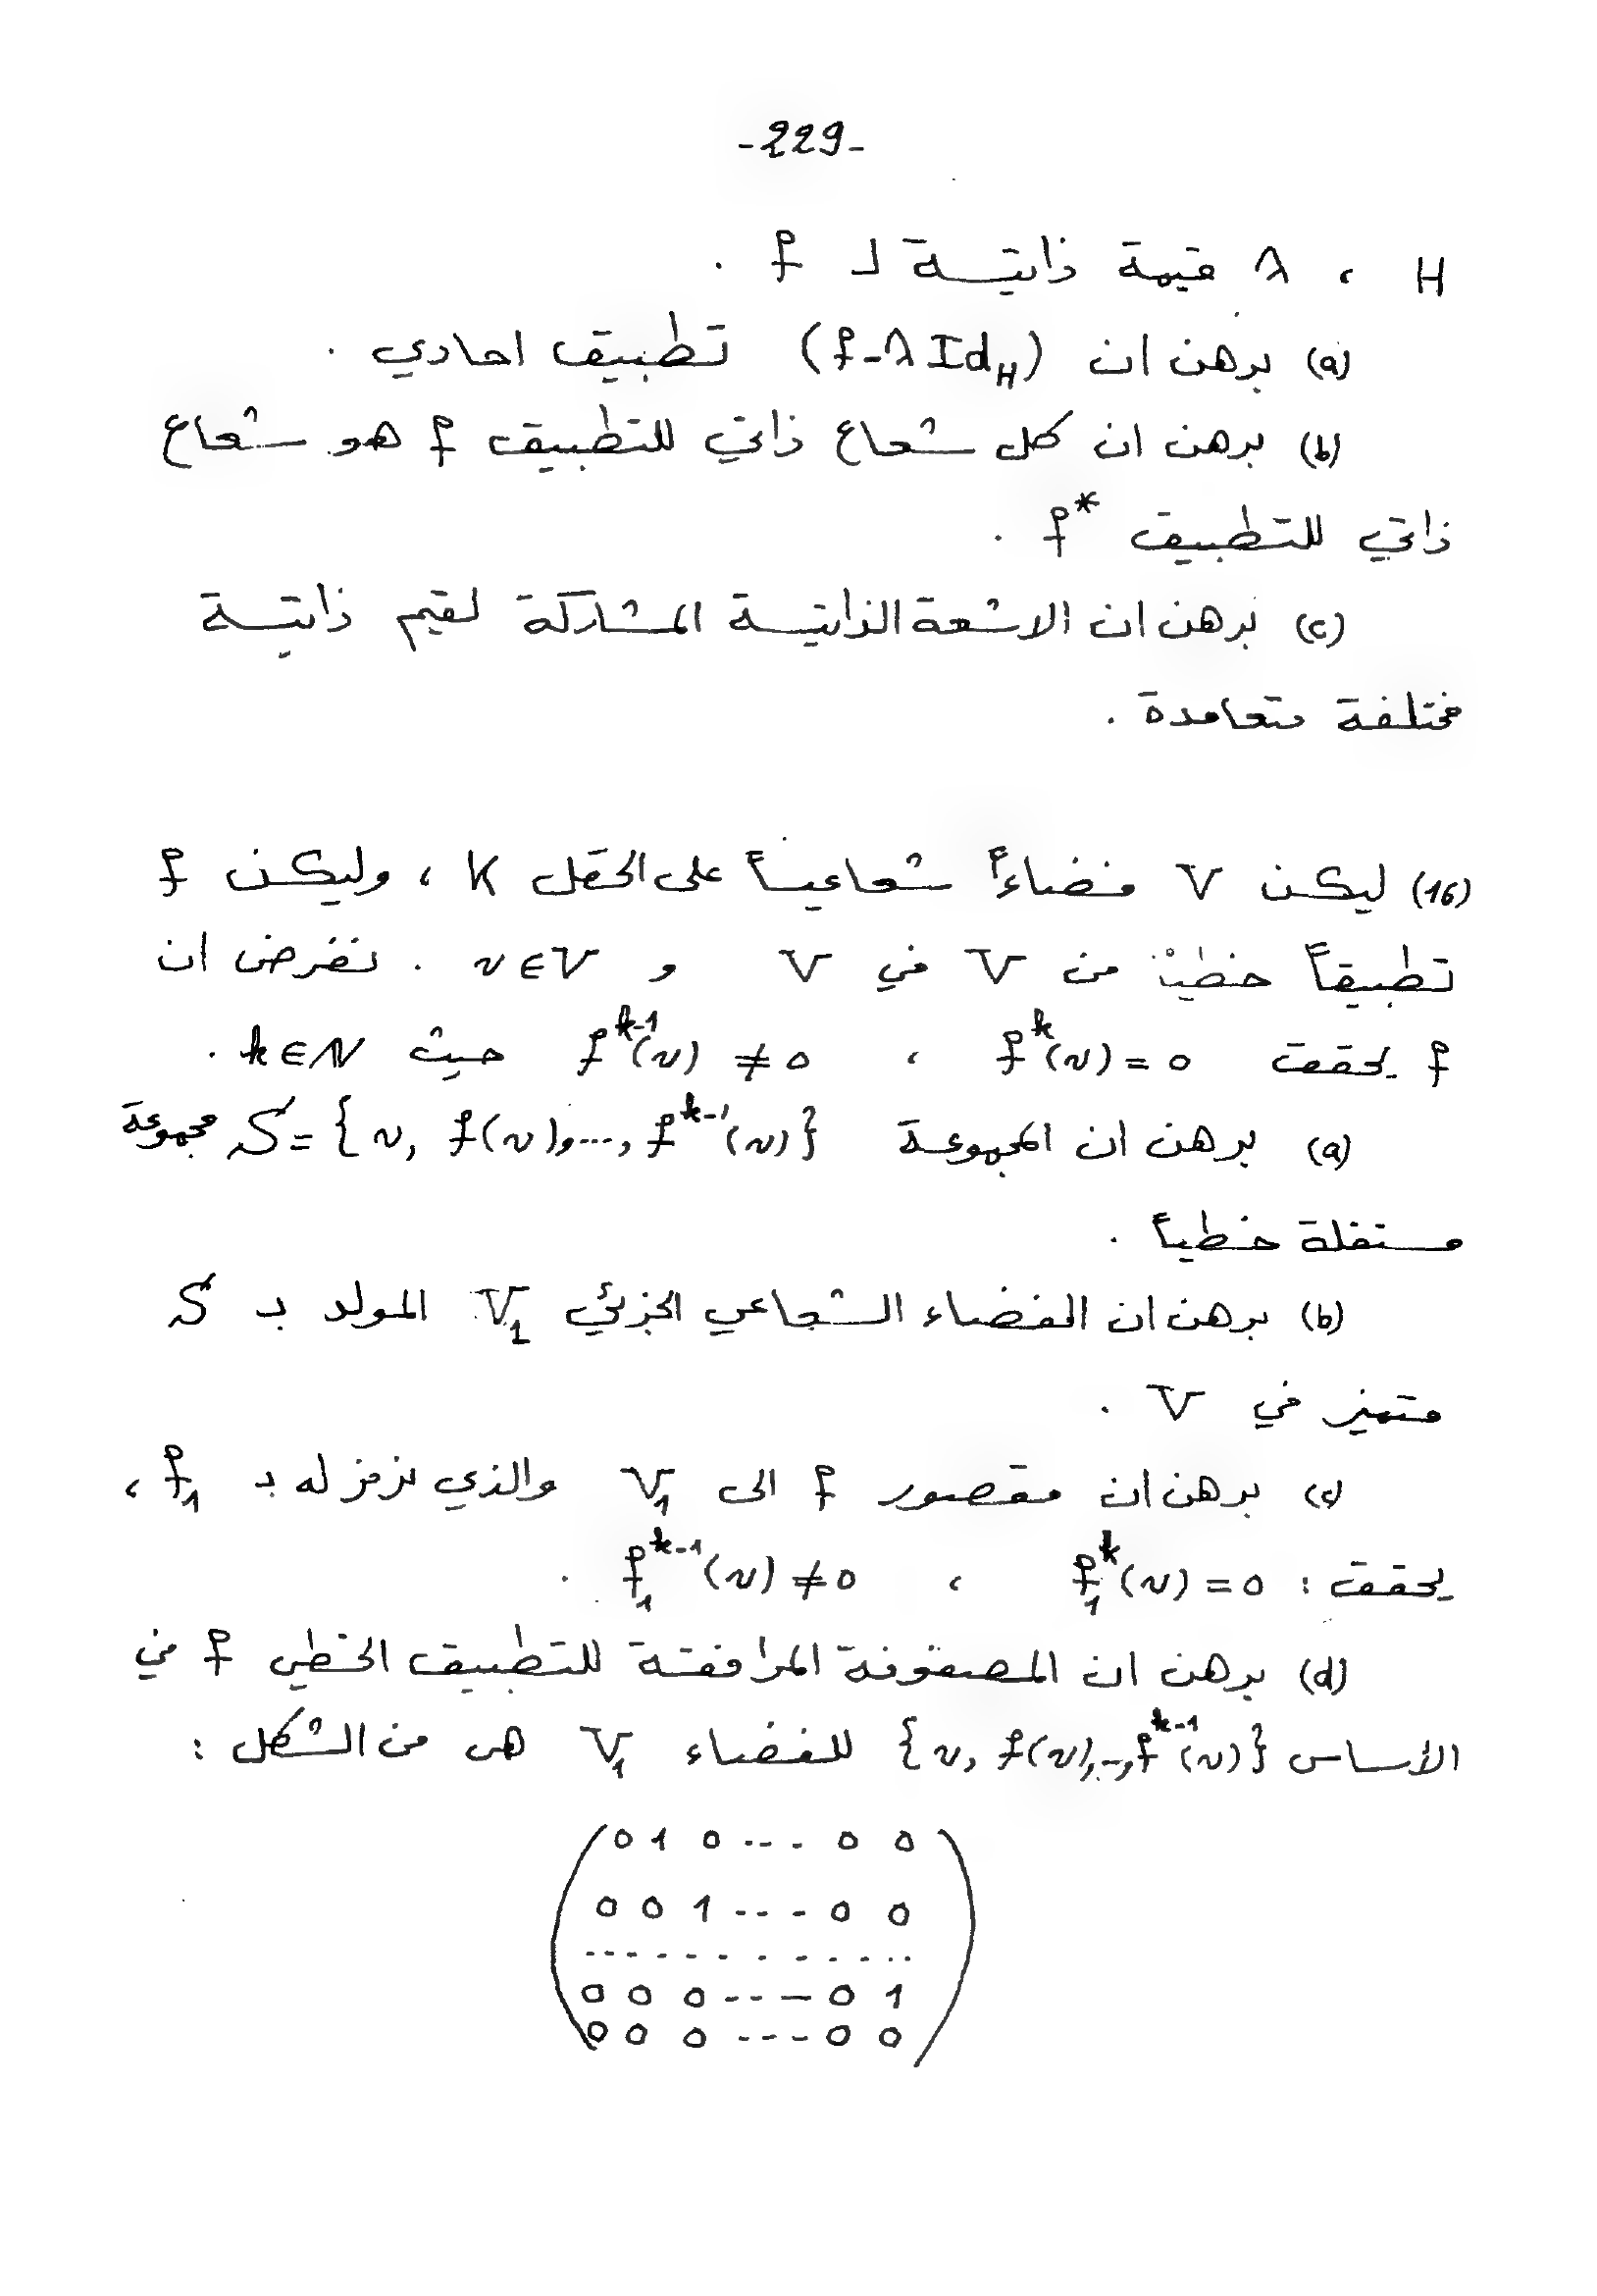 -229-
H ، λ قيمة ذاتيـة لـ f .
(a) برهن ان (f-λId_H) تطبيق احادي .
(b) برهن ان كل شعاع ذاتي للتطبيق f هو شعاع
ذاتي للتطبيق f* .
(c) برهن ان الاشعة الذاتيـة المشاركة لقيم ذاتيـة
مختلفة متعامدة .
(16) ليكن V فضاءً شعاعيـاً على الحقل K ، وليكن f
تطبيقاً خطياً من V في V و v∈V . نفرض ان
f يحقق f^k(v)=0 ، f^{k-1}(v)≠0 حيث k∈N .
(a) برهن ان المجموعة S={v, f(v),..., f^{k-1}(v)} مجموعة
مستقلة خطياً .
(b) برهن ان الفضاء الشعاعي الجزئي V_1 المولد بـ S
متميز في V .
(c) برهن ان مقصور f الى V_1 والذي نرمز له بـ f_1 ،
يحقق : f_1^k(v)=0 ، f_1^{k-1}(v)≠0 .
(d) برهن ان المصفوفة المرافقة للتطبيق الخطي f في
الأساس {v, f(v),..,f^{k-1}(v)} للفضاء V_1 هي من الشكل :
0 1 0 --- 0 0
0 0 1 --- 0 0
. . . . . . . . . . .
0 0 0 --- 0 1
0 0 0 --- 0 0